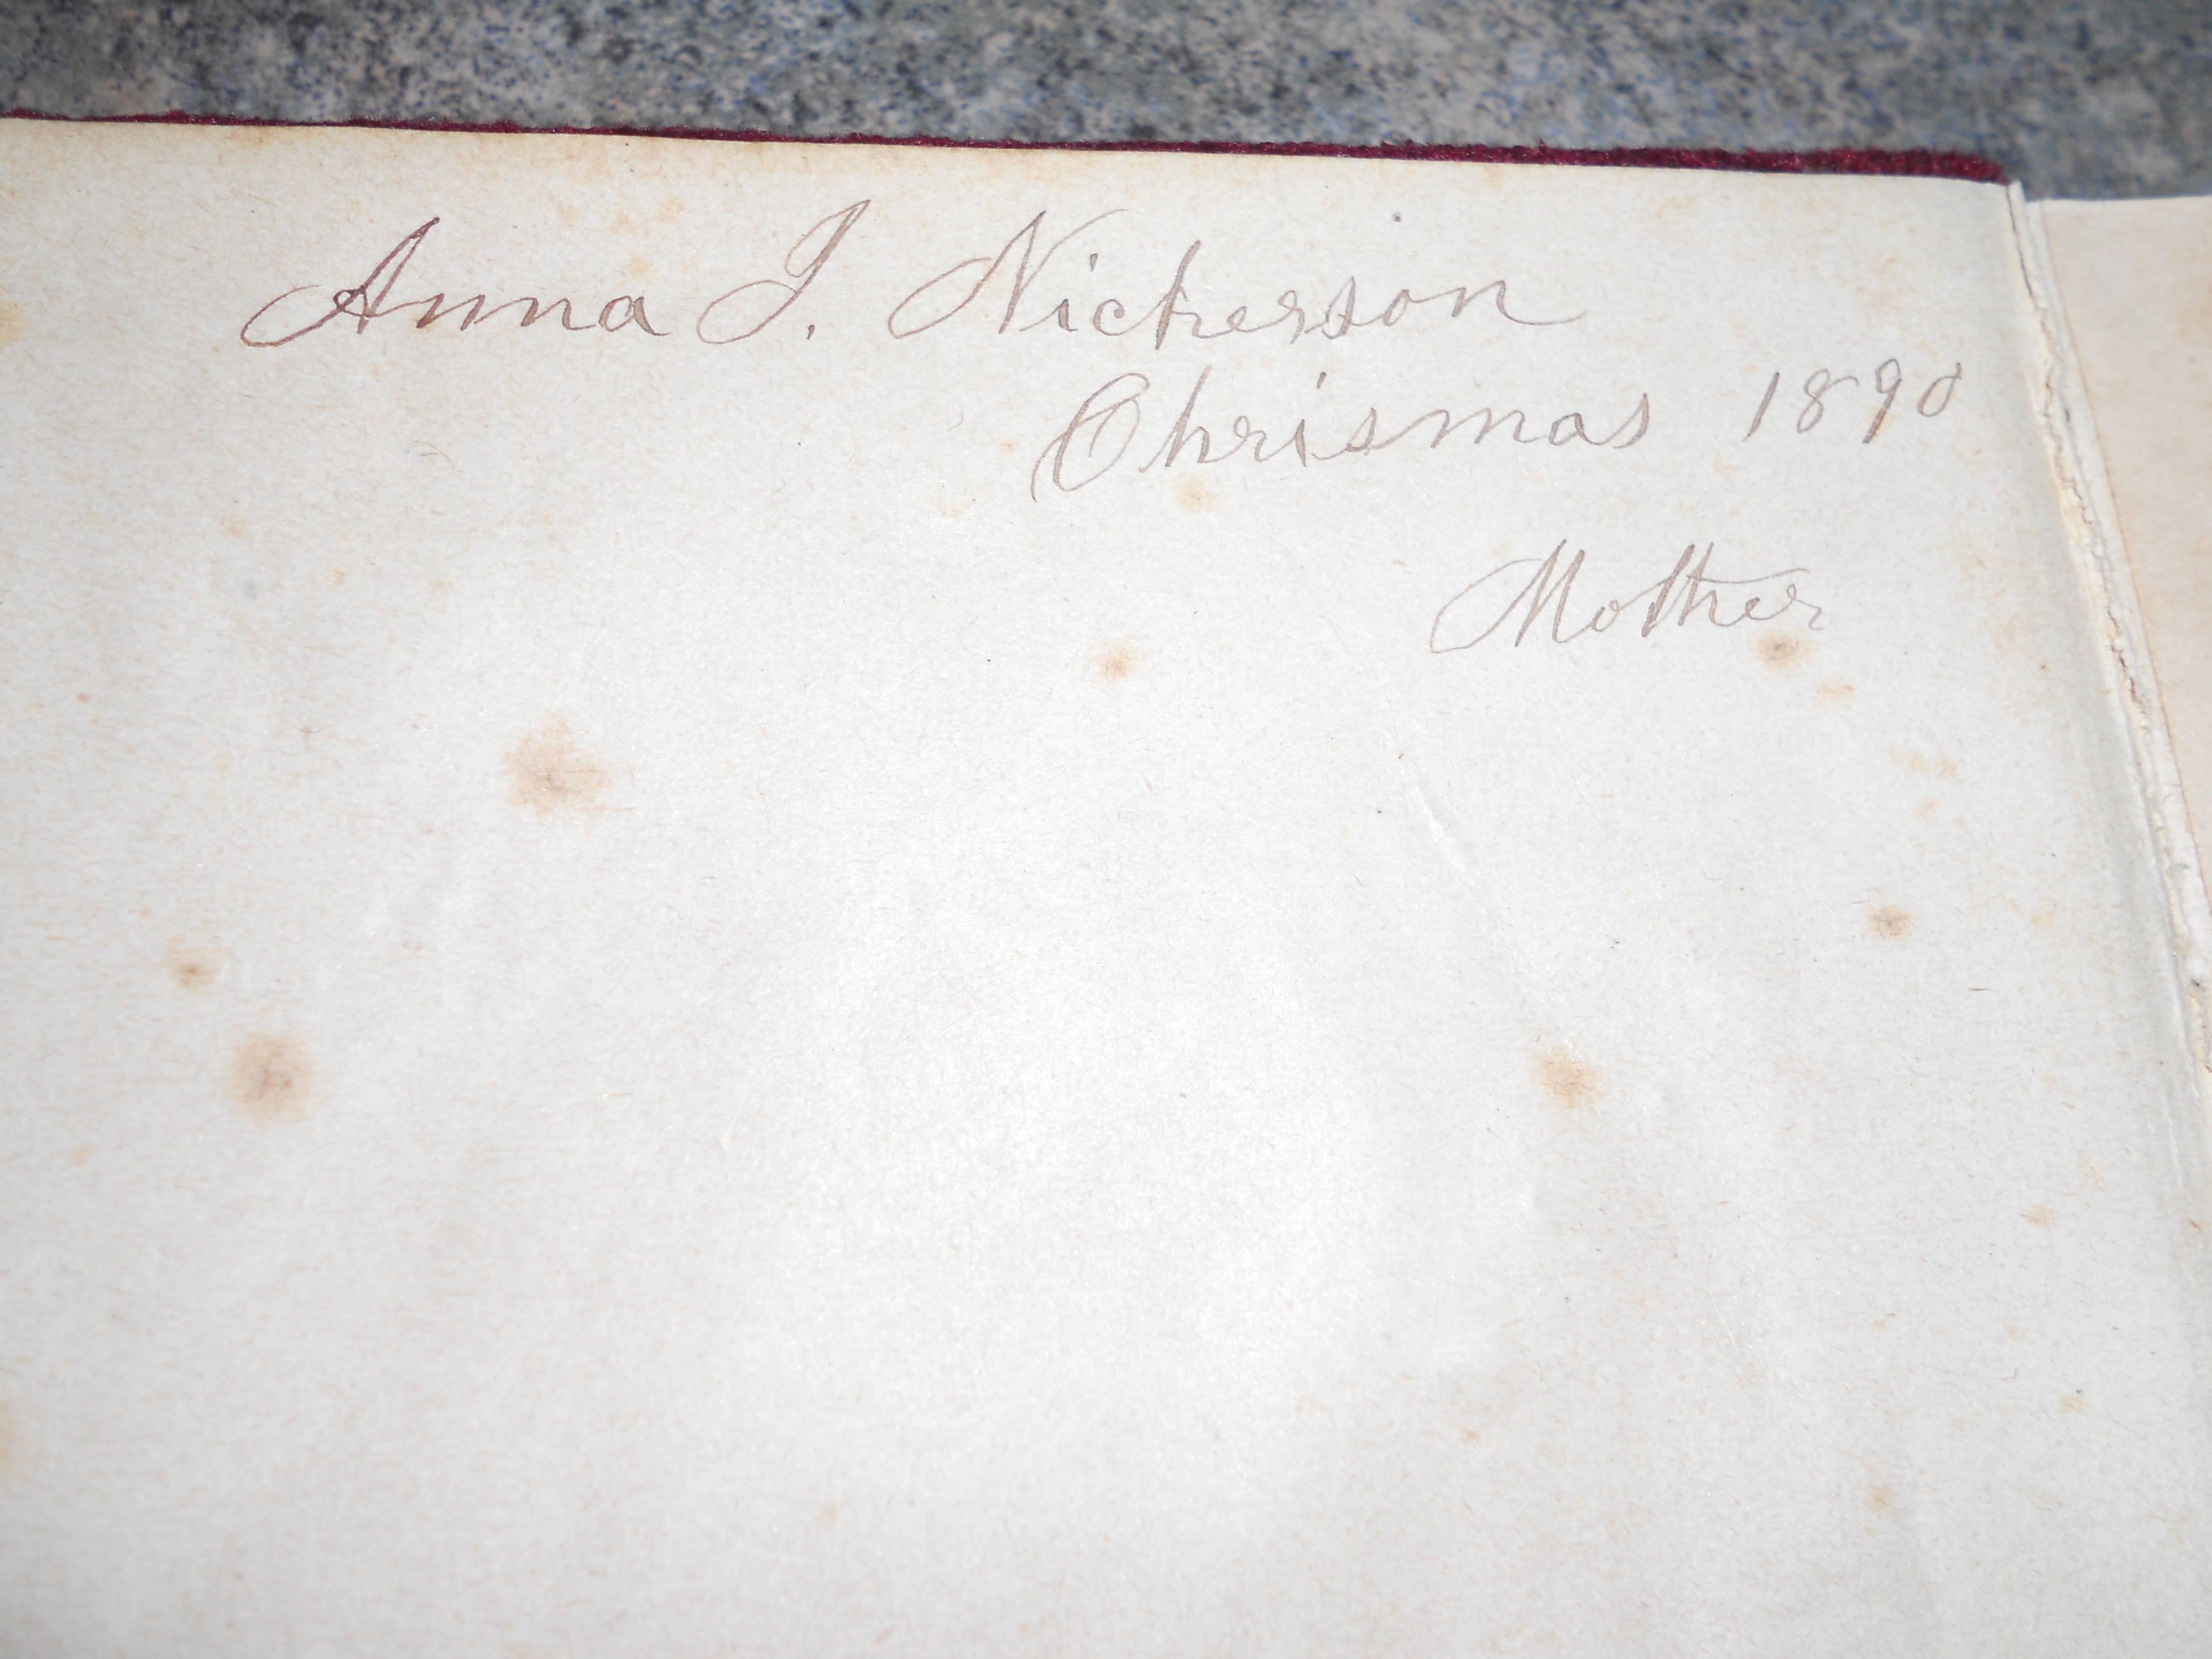 Anna J. Nickerson
Chrismas 1890
Mother